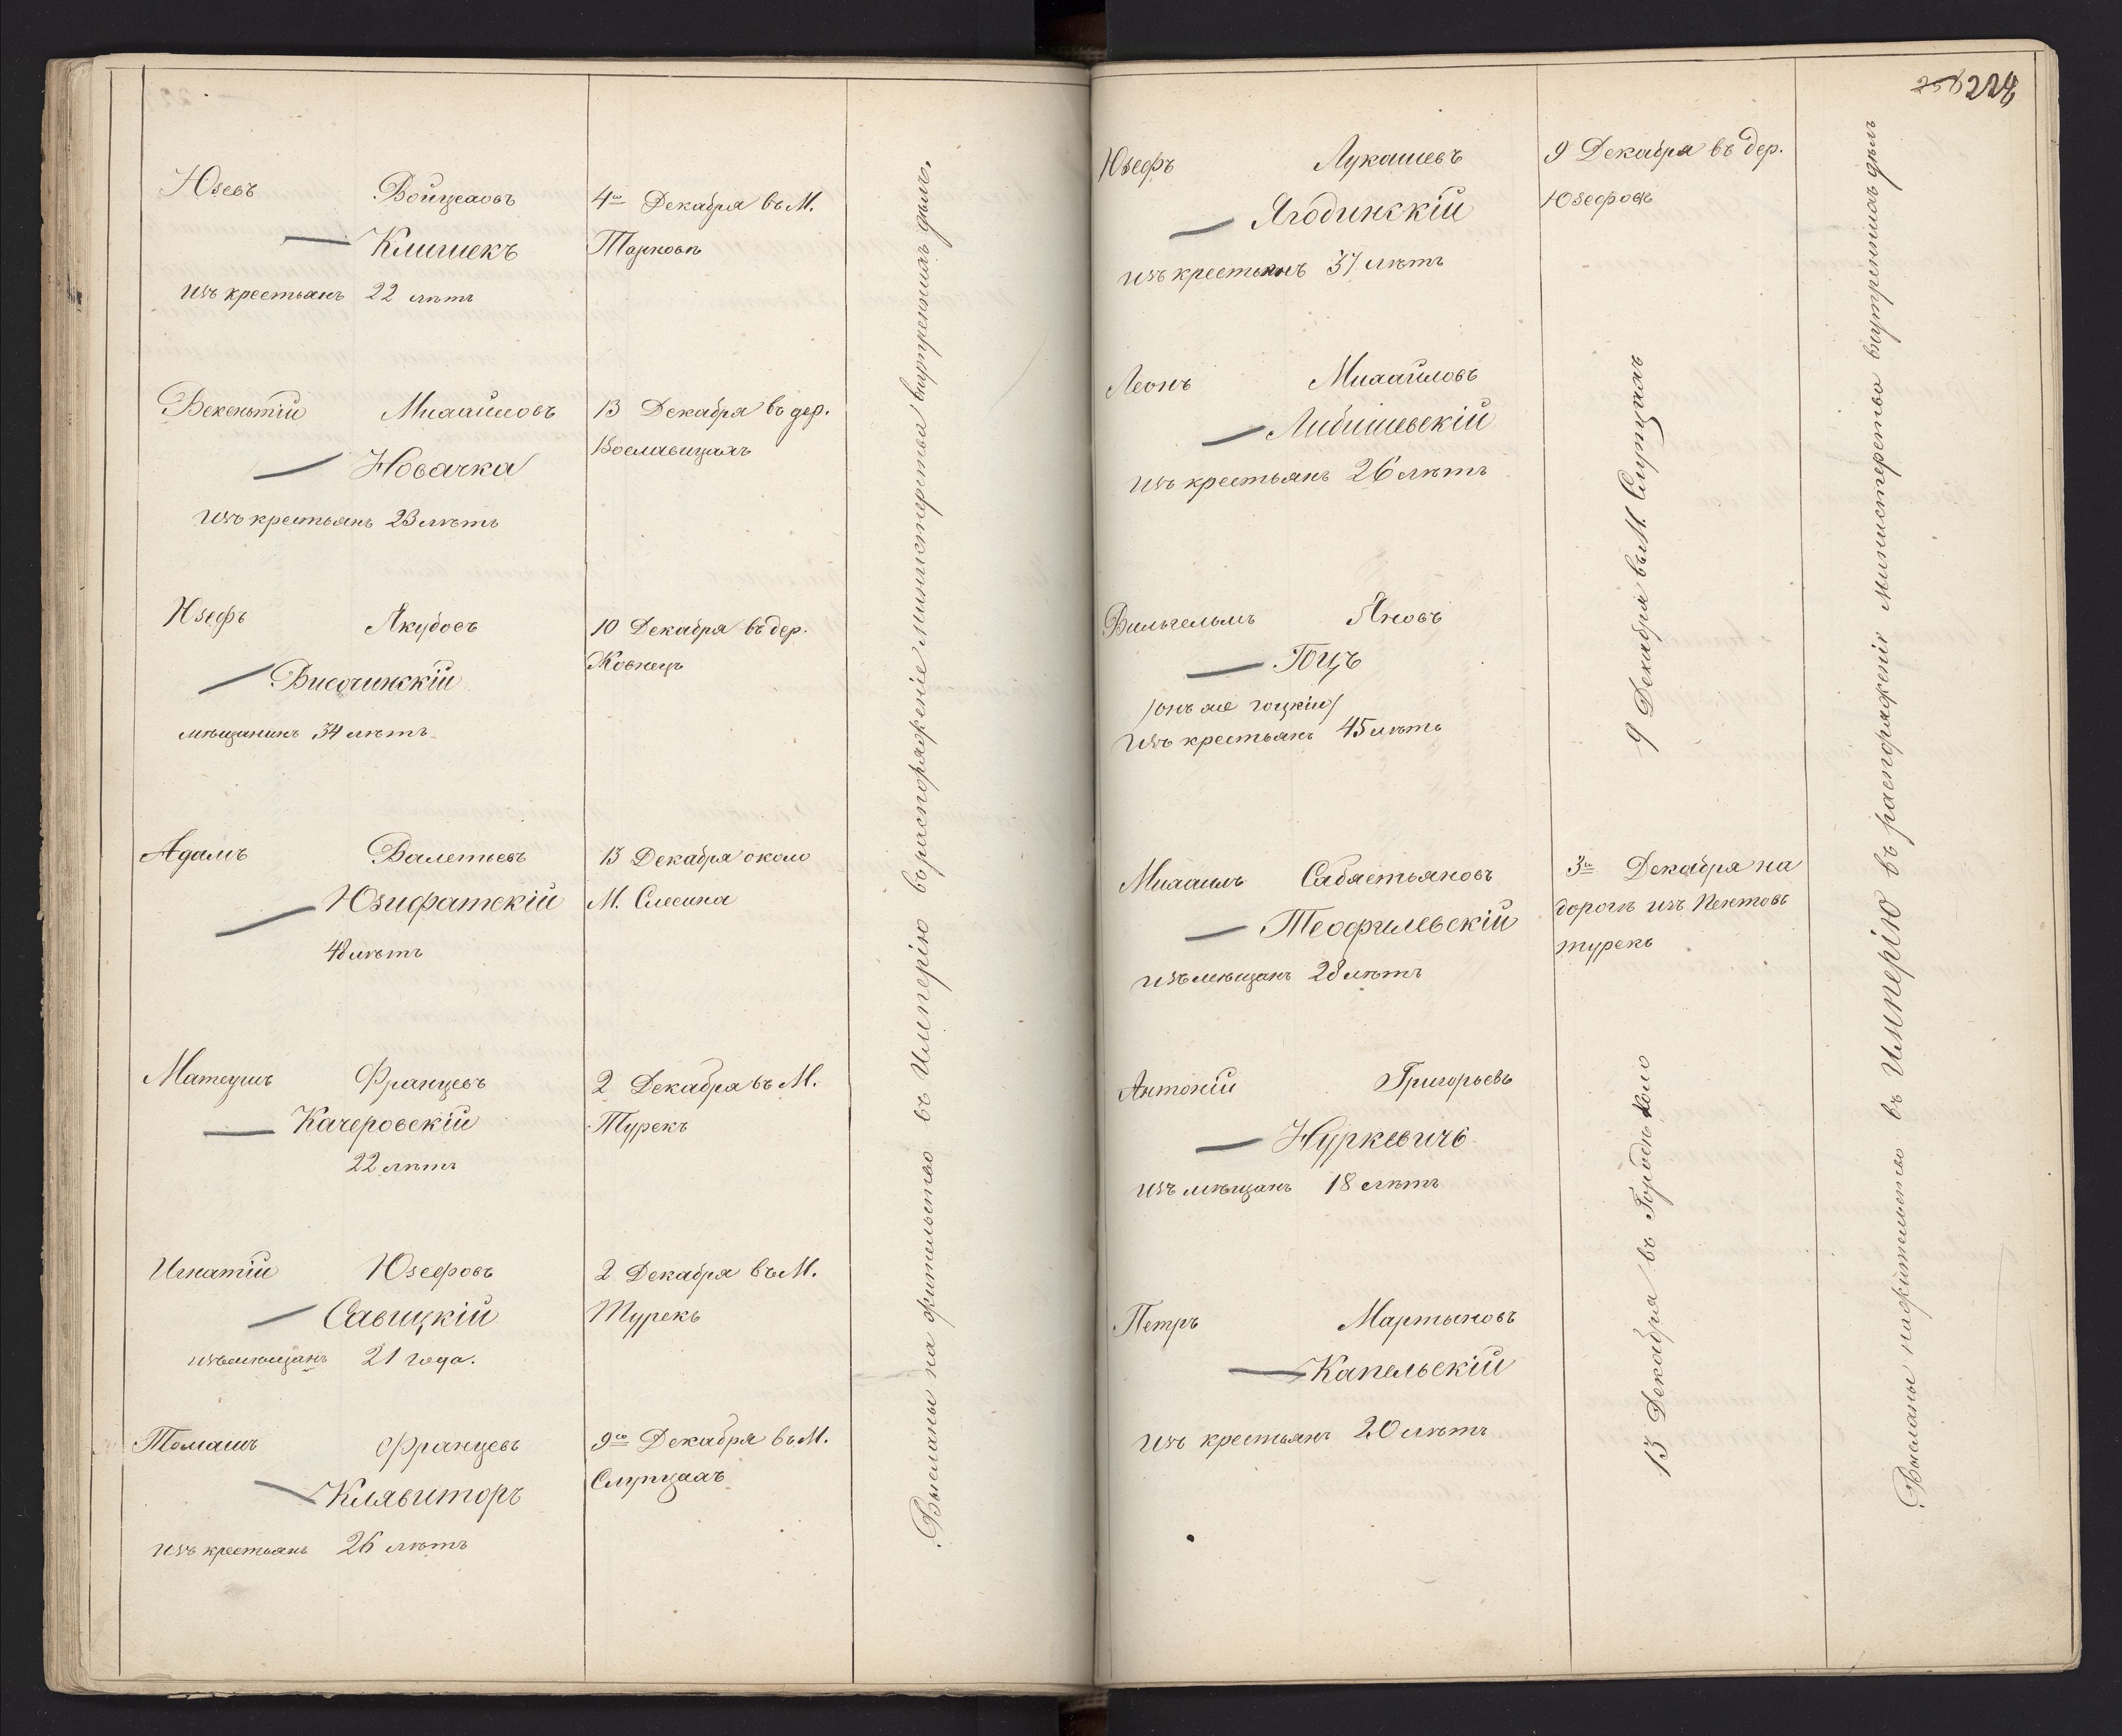 Юзевъ Войцеховъ
Клишекъ
изъ крестьянъ 22 лѣтъ
4го Декабря въ М.
Тарковѣ
Викентій Михайловъ
Новачка
изъ крестьянъ 23 лѣтъ
13 Декабря въ дер.
Вославицахъ
Юзефъ Якубовъ
Височинскій
мѣщанинъ 34 лѣтъ
10 Декабря въ дер.
Ковнецъ
Адамъ Валетьевъ
Юзифатскій
48 лѣтъ
13 Декабря около
М. Слесина
Матеушъ Францевъ
Качеровскій
22 лѣтъ
2 Декабря въ М.
Турекъ
Игнатій Юзефовъ
Савицкій
изъ мѣщанъ 21 года.
2 Декабря въ М.
Турекъ
Томашъ Францевъ
Клявиторъ
изъ крестьянъ 26 лѣтъ
9го Декабря въ М.
Слупцахъ
Высланы на жительство въ Имперію въ распоряженіе министерства внутреннихъ дѣлъ.
228
Юзефъ Лукашевъ
Ягодинскій
изъ крестьянъ 37 лѣтъ
9 Декабря въ дер.
Юзефовъ
Леонъ Михайловъ
Либишевскій
изъ крестьянъ 26 лѣтъ
Вильгельмъ Яновъ
Гоцъ
/онъ же гоцкій/
изъ крестьянъ 45 лѣтъ
9 Декабря въ М. Слупцахъ
Михаилъ Сабастьяновъ
Теофилевскій
изъ мѣщанъ 28 лѣтъ
3го Декабря на
дорогѣ изъ Пектовъ
турекъ
Антоній Григорьевъ
Нуркевичъ
изъ мѣщанъ 18 лѣтъ
Петръ Мартыновъ
Капельскій
изъ крестьянъ 20 лѣтъ
13 Декабря въ Городѣ Коло
Высланы на жительство въ Имперію въ распоряженіе Министерства внутреннихъ дѣлъ